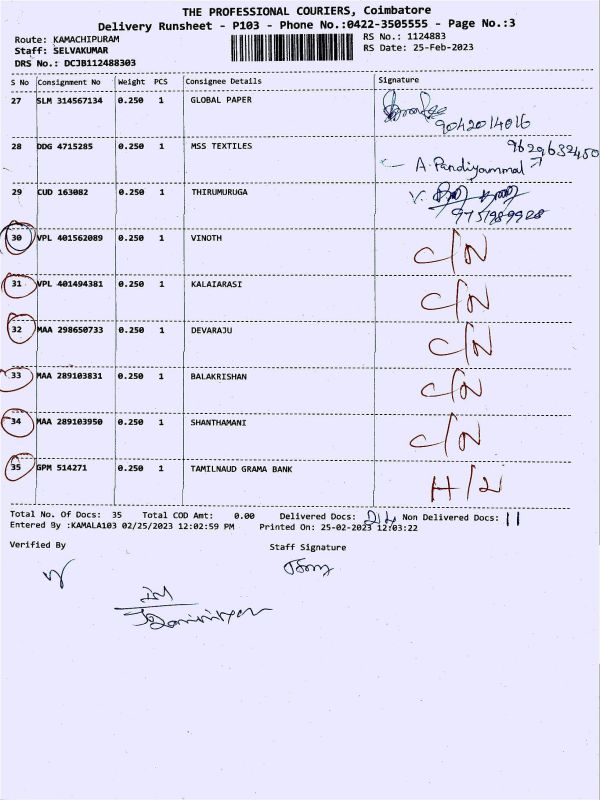 THE PROFESSIONAL COURIERS, Coimbatore
Delivery Runsheet - P103 - Phone No.:0422-3505555 - Page No.:3
Route: KAMACHIPURAM RS No.: 1124883
Staff: SELVAKUMAR RS Date: 25-Feb-2023
DRS No.: DCJB112488303
S No Consignment No Weight PCS Consignee Details Signature
27 SLM 314567134 0.250 1 GLOBAL PAPER
9042014016
28 DDG 4715285 0.250 1 MSS TEXTILES 9629632450
A. Pandiyammal
29 CUD 163082 0.250 1 THIRUMURUGA
9751989928
30 VPL 401562089 0.250 1 VINOTH C/N
31 VPL 401494381 0.250 1 KALAIARASI C/N
32 MAA 298650733 0.250 1 DEVARAJU C/N
33 MAA 289103831 0.250 1 BALAKRISHAN C/N
34 MAA 289103950 0.250 1 SHANTHAMANI C/N
35 GPM 514271 0.250 1 TAMILNAUD GRAMA BANK H/L
Total No. Of Docs: 35 Total COD Amt: 0.00 Delivered Docs: 24 Non Delivered Docs: 11
Entered By :KAMALA103 02/25/2023 12:02:59 PM Printed On: 25-02-2023 12:03:22
Verified By Staff Signature